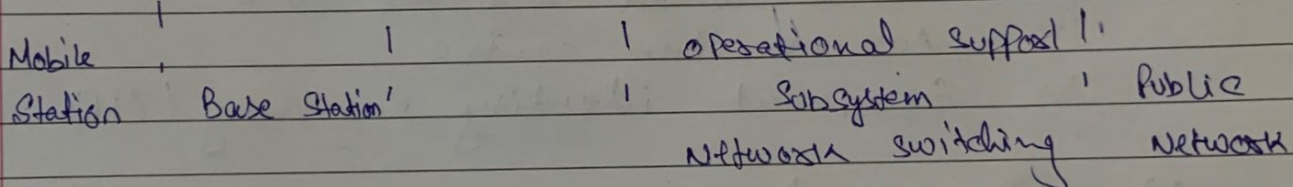 Mobile operational support
Station Base Station Subsystem Public
Network switching Network